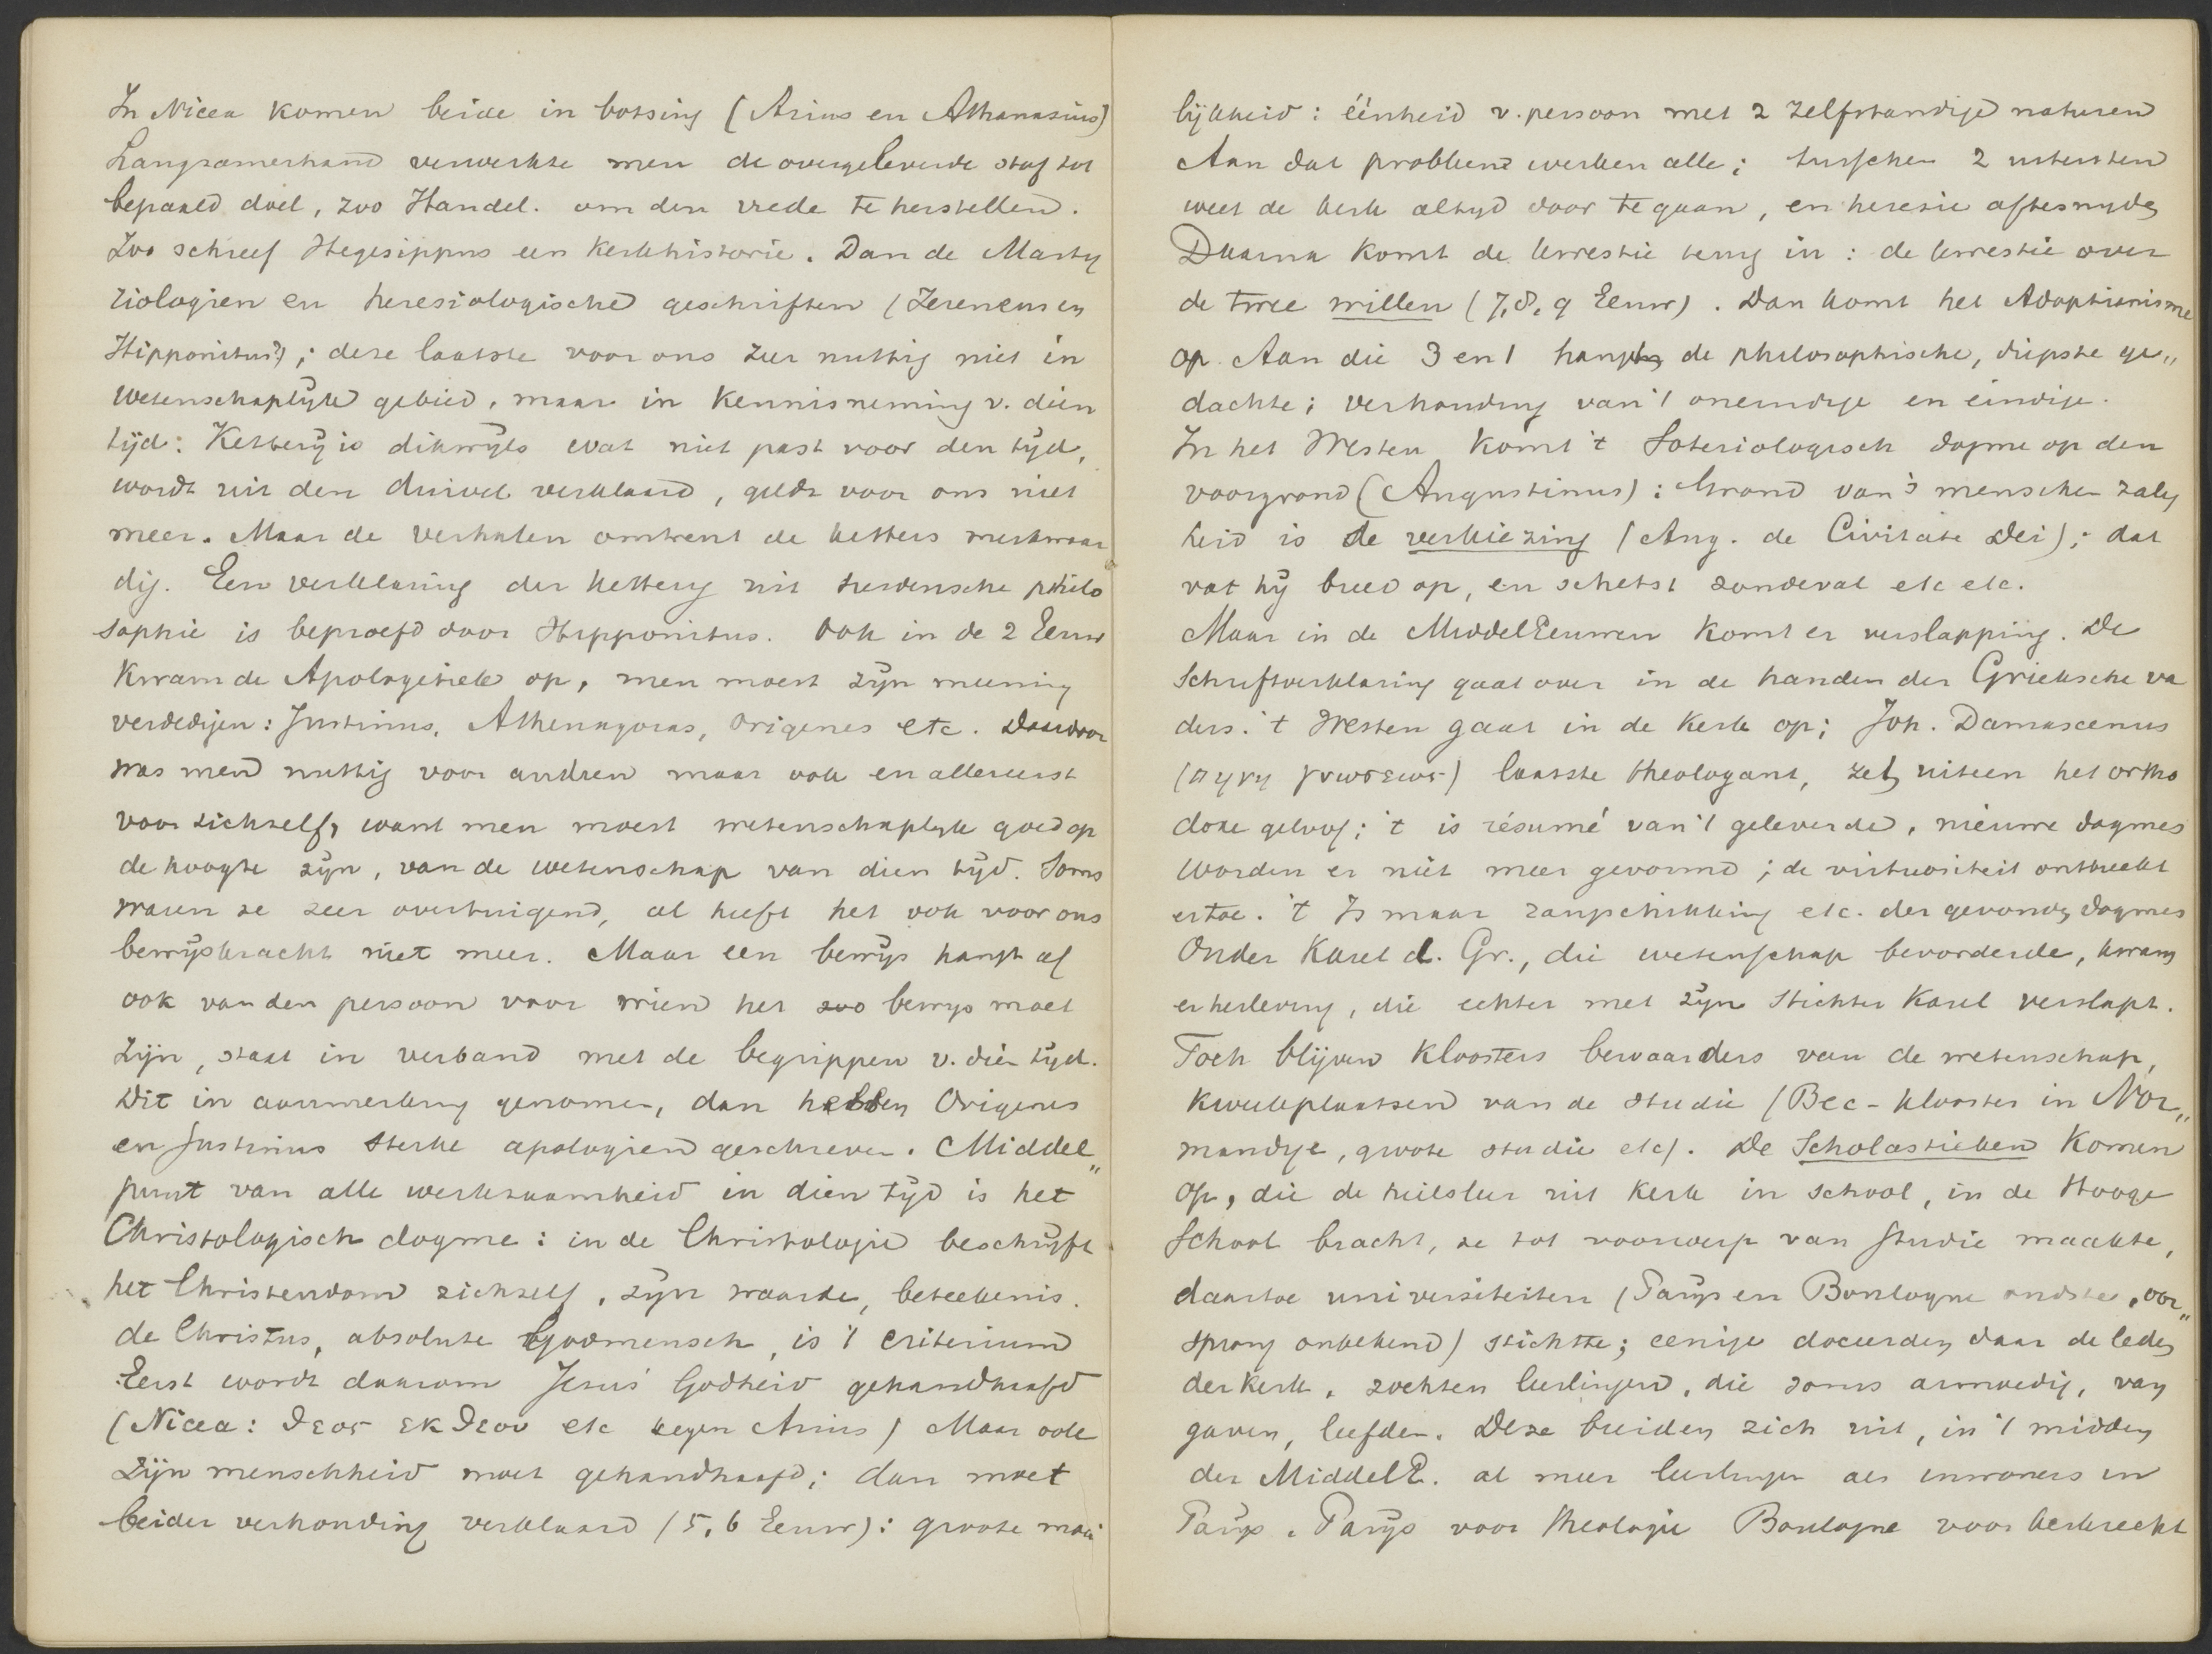 In Nicea komen beide in botsing (Arius en Athanasius)
Langzamerhand verwerkte men de overgeleverde stof tot
bepaald doel, zoo Handel. om den vrede te herstellen.
Zoo schreef Hegesippus een Kerkhistorie. Dan de Marty
riologien en heresiologische geschriften (Ireneus en
Hippolitus); deze laatste voor ons zeer nuttig niet in
wetenschaplijk gebied, maar in kennisneming v. dien
tijd: Ketterij is dikwijls wat niet past voor den tijd,
wordt uit den duivel verklaard, geldt voor ons niet
meer. Maar de verhalen omtrent de ketters merkwaar
dig. Een verklaring der ketterij uit heidensche philo
sophie is beproefd door Hippolitus. Ook in de 2 Eeuw
kwam de Apologetiek op, men moest zijn meening
verdedigen: Justinus, Athenagoras, Origenes etc. Daardoor
was men nuttig voor andren maar ook en allereerst
voor zichzelf, want men moest wetenschaplijk goed op
de hoogte zijn, van de wetenschap van dien tijd. Soms
waren ze zeer overtuigend, al heeft het ook voor ons
bewijskracht niet meer. Maar een bewijs hangt af
ook van den persoon voor wien het zoo bewijs moet
zijn, staat in verband met de begrippen v. dien tijd.
Dit in aanmerking genomen, dan hebben Origenes
en Justinus sterke apologien geschreven. Middel„
punt van alle werkzaamheid in dien tijd is het
Christologisch dogme: in de Christologie beschrijft
het Christendom zichzelf, zijn waarde, beteekenis.
de Christus, absolute Godmensch, is 't criterium
Eerst wordt daarom Jesus' Godheid gehandhaafd
(Nicea: θεος εκ θεου etc tegen Arius) Maar ook
zijn menschheid moet gehandhaafd; dan moet
beider verhouding verklaard (5, 6 Eeuw): groote moei
lijkheid: éénheid v. persoon met 2 zelfstandige naturen
Aan dat probleem werken alle; tusschen 2 uitersten
weet de kerk altijd door te gaan, en heresie aftesnijden
Daarna komt de kwestie terug in: de kwestie over
de twee willen (7, 8, 9 Eeuw). Dan komt het Adoptianisme
op. Aan die 3 en 1 hangt de philosophische, diepste ge„
dachte; verhouding van 't oneindige en eindige.
In het Westen komt 't Soteriologisch dogme op den
voorgrond (Augustinus): Grond van 's menschen zalig
heid is de verkiezing (Aug. de Civitate Dei); dat
vat hij breed op, en schetst zondeval etc etc.
Maar in de MiddelEeuwen komt er verslapping. De
Schriftverklaring gaat over in de handen der Grieksche va
ders. 't Westen gaat in de Kerk op; Joh. Damascenus
(πηγη γνωσεως) laatste theologant, zet uiteen het ortho
doxe geloof; 't is résumé van 't geleverde, nieuwe dogmes
worden er niet meer gevormd; de virtuositeit ontbreekt
ertoe. 't Is maar rangschikking etc. der gevonden dogmes
Onder Karel d. Gr., die wetenschap bevorderde, kwam
er herleving, die echter met zijn Stichter Karel verslapt.
Toch blijven kloosters bewaarders van de wetenschap,
kweekplaatsen van de studie (Bec-klooster in Nor„
mandye, groote studie etc). De Scholastieken komen
op, die de heilsleer uit kerk in school, in de Hooge
School bracht, ze tot voorwerp van studie maakte,
daartoe universiteiten (Parijs en Boulogne oudste, oor„
sprong onbekend) stichtte; eenige doceerden daar de leden
der kerk, zochten leerlingen, die soms armoedig, van
gaven, leefden. Deze breiden zich uit, in 't midden
der MiddelE. al meer leerlingen als inwoners in
Parijs. Parijs voor theologie Boulogne voor kerkrecht